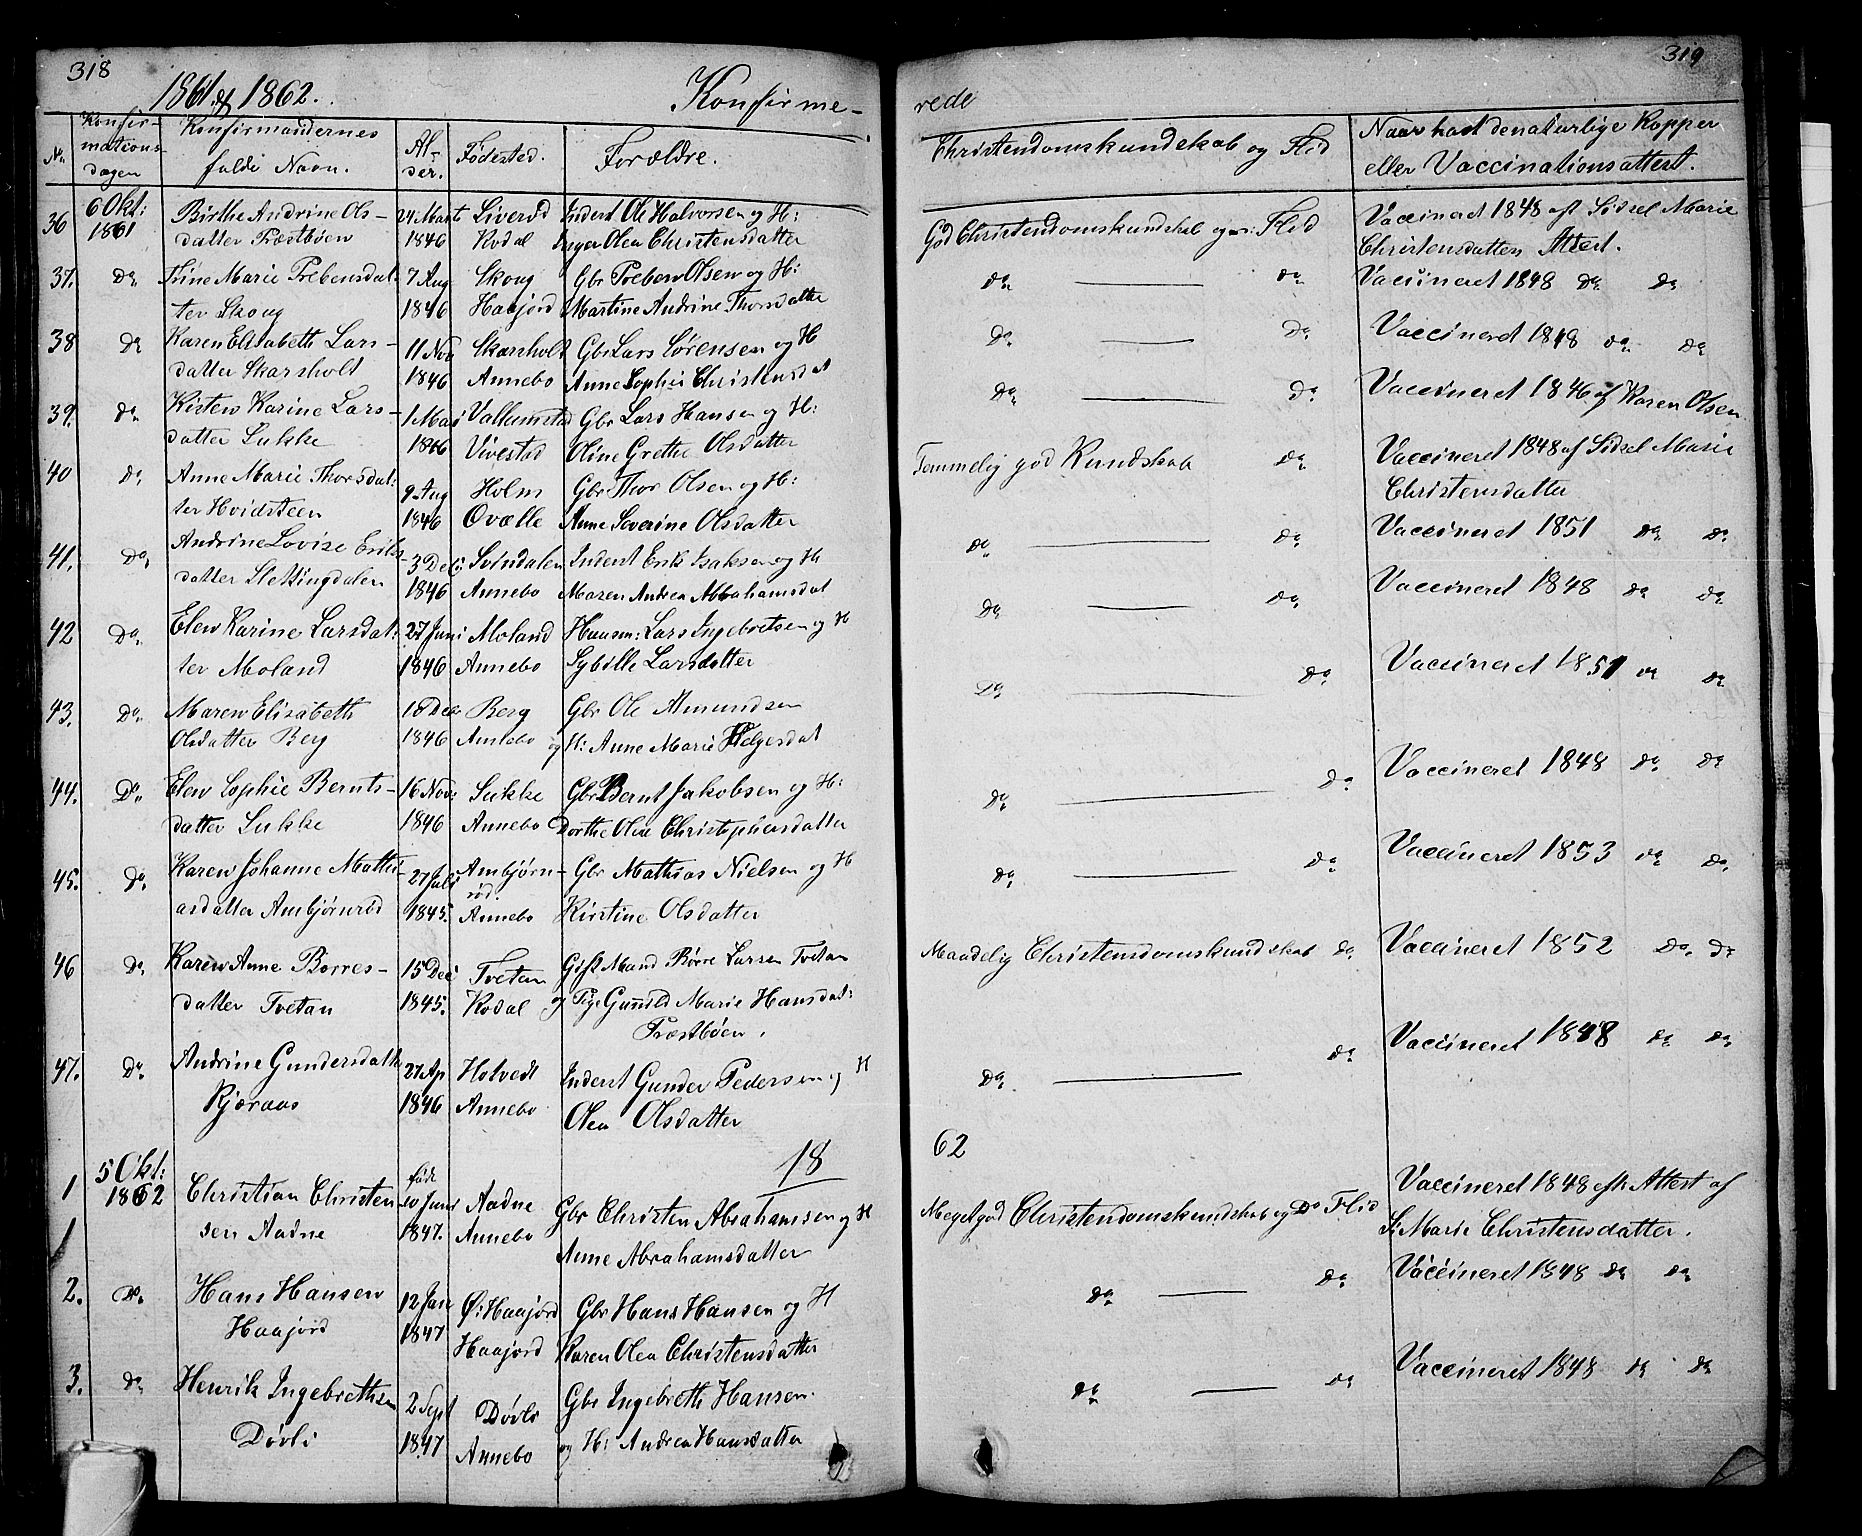 318
1861 & 1862. Konfirme-
No. Konfir-mations-dagen Konfirmandernes fulde Navn. Al-der. Fødested. Forældre.
36 6 Okt: 1861 Birthe Andrine Ols- 24 Marts Liverød Inderst Ole Halvorsen og H:
datter Præstbøen 1846 Kodal Inger Olea Christensdatter
37. do Trine Marie Prebensdat- 7 Aug Skoug Gbr Preben Olsen og H:
ter Skoug 1846 Haajord Martine Andrine Thorsdatter
38 do Karen Elisabeth Lars- 11 Nov Skarsholt Gbr Lars Sørensen og H
datter Skarsholt 1846 Annebo Anne Sophie Christensdat
39. do Kirsten Karine Lars- 1 Mai Vallumstad Gbr Lars Hansen og H:
datter Sukke 1846 Vivestad Oline Grethe Olsdatter
40 do Anne Marie Thorsdat:
ter Hvidsteen 9 Aug 1846 Holm Qvælle Gbr Thor Olsen og H: Anne Severine Olsdatter
41. Do Andrine Lovise Eriks-
datter Slettingdalen 3 Dec: 1846 Svindalen Annebo Inderst Erik Isaksen og H Maren Andrea Abrahamsdat
42 Do Elen Karine Larsdat: 27 Juni Moland Huusm: Lars Ingebretsen og H
ter Moland 1846 Annebo Sybille Larsdatter
43. Do Maren Elisabeth 18 Decbr Berg Gbr Ole Amundsen
Olsdatter Berg 1846 Annebo og H: Anne Marie Helgesdat
44. Do Elen Sophie Bernts- 16 Nov: Sukke Gbr Bernt Jakobsen og H:
datter Sukke 1846 Annebo Dorthe Olea Christophersdatter
45. Do Karen Johanne Matti- 27 Juli Ambjørn-rød. Gbr Mathias Nielsen og H
asdatter Ambjørnrød 1845. Annebo Kirstine Olsdatter
46 Do Karen Anne Børres- 15 Dec Tvetan Gift Mand Børre Larsen Tvetan
datter Tvetan 1845. Kodal og Pige Gunild Marie Hansdat:
Præstbøen.
47. Do Andrine Gundersdatter 27 Ap Holvedt Inderst Gunder Pedersen og H
Kjæraas 1846 Annebo Olea Olsdatter
18
1 5 Okt: 1862 Christian Christen født 10 Juni Aadne Gbr Christen Abrahamsen og H
1 sen Aadne 1847. Annebo Anne Abrahamsdatter
2. Do Hans Hansen 12 Jan Ø: Haajord Gbr Hans Hansen og H
Haajord 1847 Haajord Karen Olea Christensdatter
3. do Henrik Ingebrethsen 2 Sept Døvle Gbr Ingebreth Hansen
Døvle 1847 Annebo og H: Andrea Hansdatter
319
rede
Christendomskundskab og Flid Naar havt de naturlige Kopper
eller Vaccinationsattest.
God Christendomskundskab og Flid Vaccineret 1848 eft Sidsel Marie
Christensdatters Attest.
do do Vaccineret 1848 do do
do Do Vaccineret 1848 do do
do do Vaccineret 1846 af Karen Olsen
Temmelig god Kundskab do Vaccineret 1848 af Sidsel Marie
Christensdatter
do do Vaccineret 1851 do do
do do Vaccineret 1848 do do
Do do Vaccineret 1851 do do
do do Vaccineret 1848 do do
do do Vaccineret 1853 do do
Maadelig Christendomskundskab do Vaccineret 1852 do do
do do Vaccineret 1848 do do
62
Meget god Christendomskundskab og Do Flid Vaccineret 1848 efter Attest af
S. Marie Christensdatter.
do do Vaccineret 1848 do do
do do Vaccineret 1848 do do